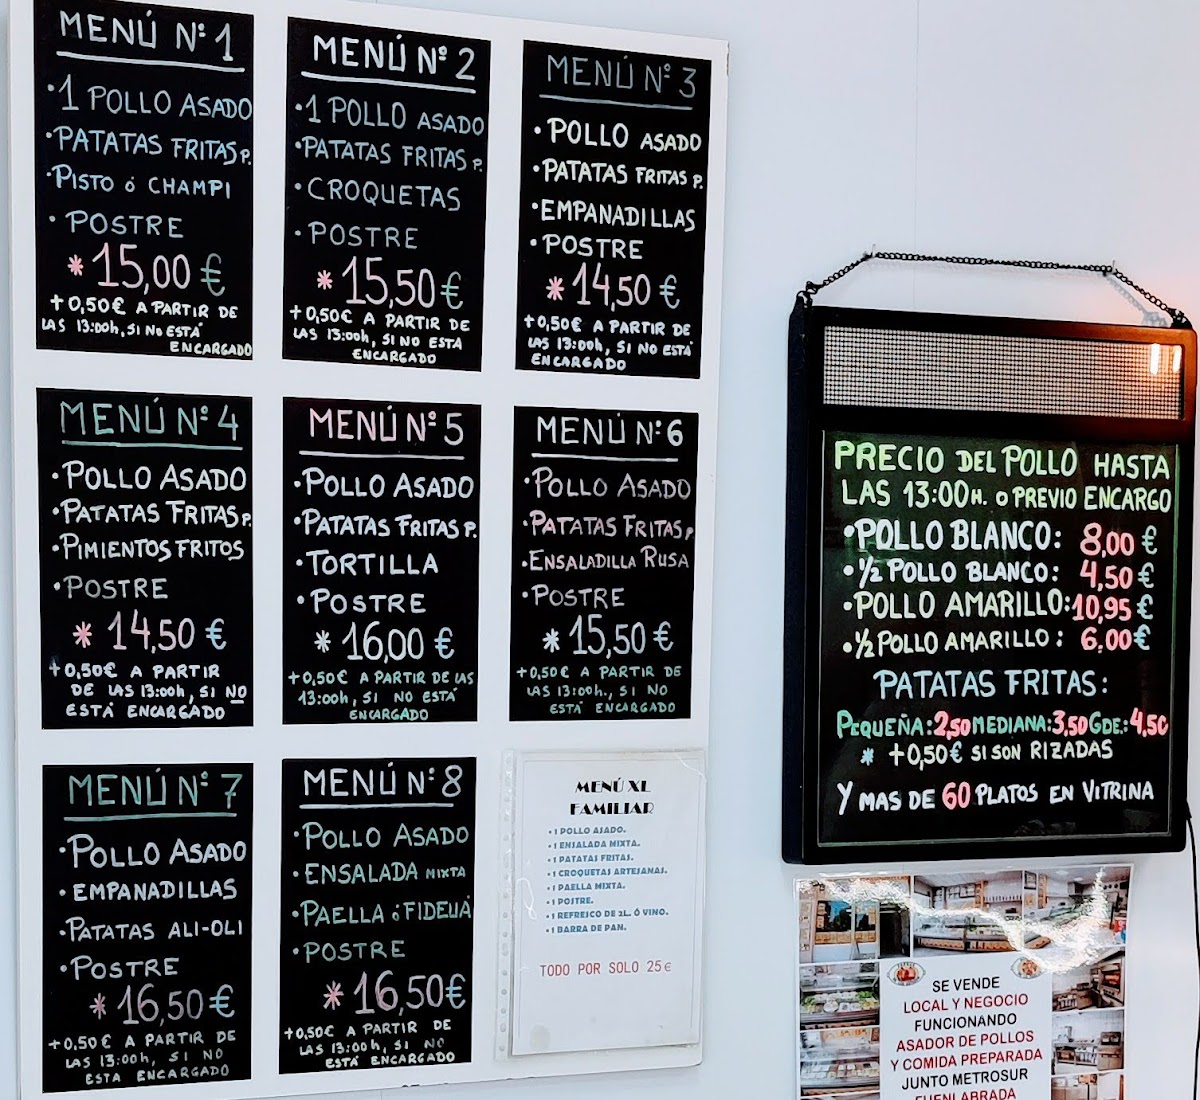 MENÚ Nº 1
·1 POLLO ASADO
·PATATAS FRITAS P.
·PISTO ó CHAMPI
· POSTRE
* 15,00 €
+ 0,50€ A PARTIR DE
LAS 13:00h, SI NO ESTÁ
ENCARGADO
MENÚ Nº 2
·1 POLLO ASADO
·PATATAS FRITAS P.
·CROQUETAS
·POSTRE
* 15,50 €
+0,50€ A PARTIR DE
LAS 13:00h, SI NO ESTÁ
ENCARGADO
MENÚ Nº 3
·POLLO ASADO
·PATATAS FRITAS P.
·EMPANADILLAS
·POSTRE
* 14,50 €
+0,50€ A PARTIR DE
LAS 13:00h, SI NO ESTÁ
ENCARGADO
MENÚ Nº 4
·POLLO ASADO
·PATATAS FRITAS P.
·PIMIENTOS FRITOS
·POSTRE
* 14,50 €
+0,50€ A PARTIR
DE LAS 13:00h, SI NO
ESTÁ ENCARGADO
MENÚ Nº 5
·POLLO ASADO
·PATATAS FRITAS P.
·TORTILLA
·POSTRE
* 16,00 €
+0,50€ A PARTIR DE LAS
13:00h, SI NO ESTÁ
ENCARGADO
MENÚ Nº 6
·POLLO ASADO
·PATATAS FRITAS P
·ENSALADILLA RUSA
·POSTRE
* 15,50 €
+0,50€ A PARTIR DE
LAS 13:00h., SI NO
ESTÁ ENCARGADO
MENÚ Nº 7
·POLLO ASADO
·EMPANADILLAS
·PATATAS ALI-OLI
·POSTRE
* 16,50 €
+0,50€ A PARTIR DE
LAS 13:00h, SI NO
ESTA ENCARGADO
MENÚ Nº 8
·POLLO ASADO
·ENSALADA MIXTA
·PAELLA ó FIDEUÁ
·POSTRE
* 16,50€
+0,50€ A PARTIR DE
LAS 13:00h, SI NO
ESTÁ ENCARGADO
MENÚ XL
FAMILIAR
• 1 POLLO ASADO.
• 1 ENSALADA MIXTA.
• 1 PATATAS FRITAS.
• 1 CROQUETAS ARTESANAS.
• 1 PAELLA MIXTA.
• 1 POSTRE.
• 1 REFRESCO DE 2L. Ó VINO.
• 1 BARRA DE PAN.
TODO POR SOLO 25€
PRECIO DEL POLLO HASTA
LAS 13:00H. O PREVIO ENCARGO
·POLLO BLANCO: 8,00 €
·½ POLLO BLANCO: 4,50 €
·POLLO AMARILLO: 10,95 €
·½ POLLO AMARILLO: 6,00€
PATATAS FRITAS:
PEQUEÑA: 2,50 MEDIANA: 3,50 GDE.: 4,50
* +0,50€ SI SON RIZADAS
Y MAS DE 60 PLATOS EN VITRINA
SE VENDE
LOCAL Y NEGOCIO
FUNCIONANDO
ASADOR DE POLLOS
Y COMIDA PREPARADA
JUNTO METROSUR
FUENLABRADA